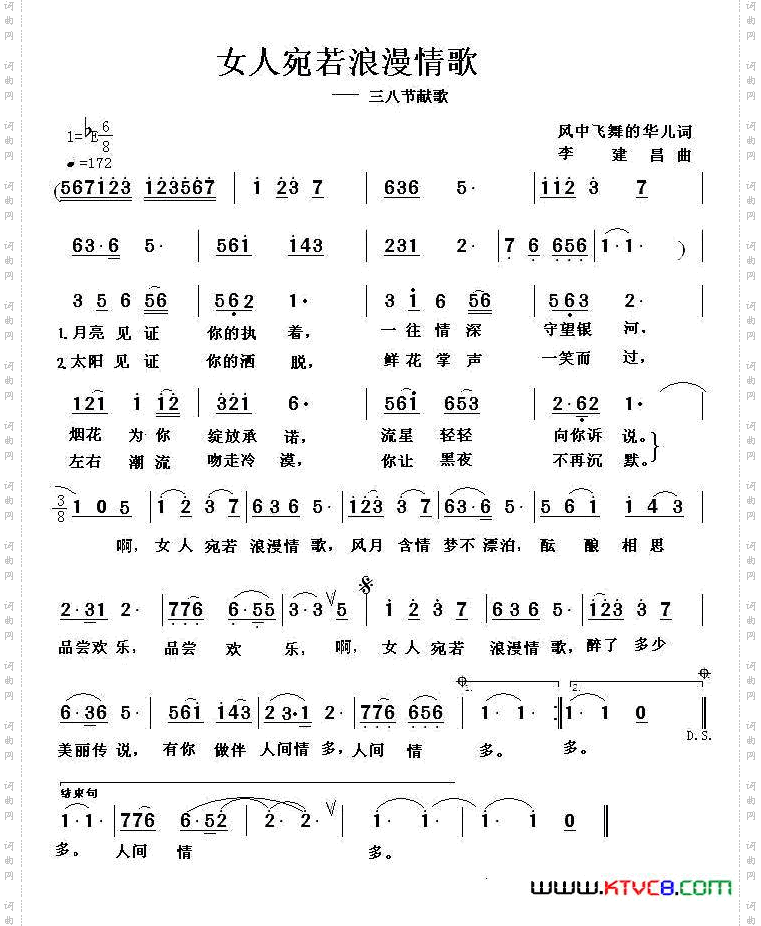 女人宛若浪漫情歌
—— 三八节献歌
1=♭E 6/8
♩=172
风中飞舞的华儿词
李 建 昌 曲
(567123 123567 | 1 23 7 | 636 5· | 112 3 7 |
63·6 5· | 561 143 | 231 2· | 7 6 656 | 1· 1· )
3 5 6 56 | 562 1· | 3 1 6 56 | 563 2·
1.月亮 见 证 你的执 着， 一 往 情 深 守望银 河，
2.太阳 见 证 你的洒 脱， 鲜 花 掌 声 一笑而 过，
121 1 12 | 321 6· | 561 653 | 2·62 1·
烟花 为 你 绽放承 诺， 流星 轻轻 向你诉 说。
左右 潮 流 吻走冷 漠， 你让 黑夜 不再沉 默。
3/8 1 0 5 | 1 2 3 7 | 6 3 6 5· | 123 3 7 | 63·6 5· | 5 6 1 1 4 3
啊，女 人 宛若 浪漫情 歌，风月 含情 梦不 漂泊，酝 酿 相 思
2·31 2· | 776 6·55 | 3·3 5 | 1 2 3 7 | 6 3 6 5· | 123 3 7
品尝欢 乐，品尝 欢 乐，啊，女 人 宛若 浪漫情 歌，醉了 多少
1. 2.
6·36 5· | 561 143 | 23·1 2· | 776 656 | 1· 1· :| 1· 1· 0
D.S.
美丽传 说，有你 做伴 人间情 多，人间 情 多。 多。
结束句
1· 1· | 776 6·52 | 2· 2· | 1· 1· | 1· 1· 0
多。 人间 情 多。
www.KTVC8.com
词曲网